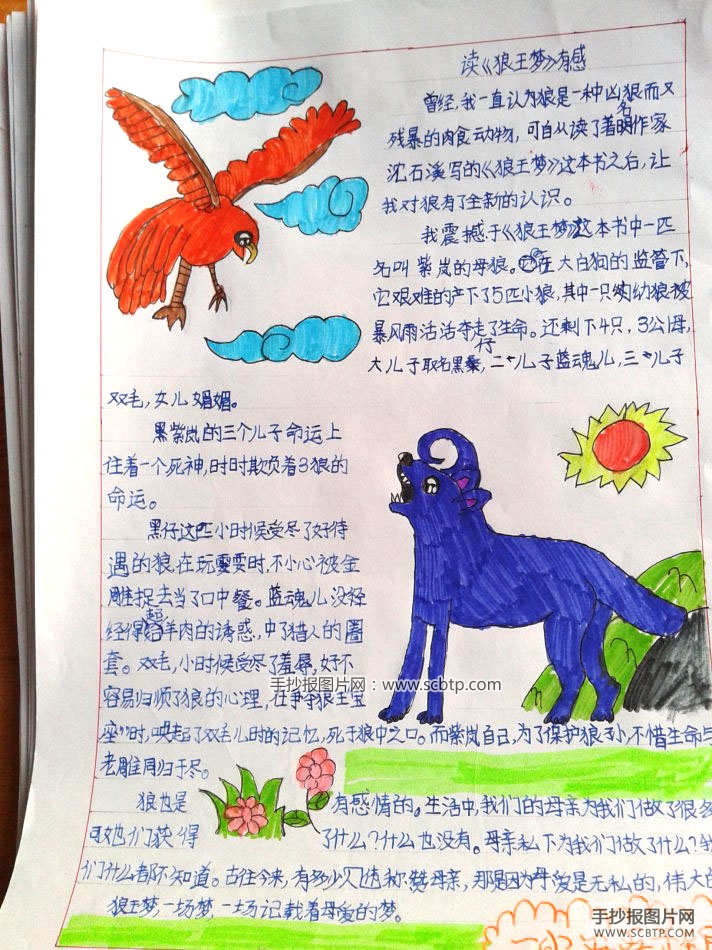 读《狼王梦》有感
曾经,我一直认为狼是一种凶狠而又
残暴的肉食动物,可自从读了著名作家
沈石溪写的《狼王梦》这本书之后,让
我对狼有了全新的认识。
我震撼于《狼王梦》这本书中一匹
名叫紫岚的母狼。在大白狗的监管下,
它艰难的产下了5匹小狼,其中一只幼狼被
暴风雨活活夺走了生命。还剩下4只,3公1母,
大儿子取名黑仔,二儿子蓝魂儿,三儿子
双毛,女儿媚媚。
黑紫岚的三个儿子命运上
住着一个死神,时时欺负着3狼的
命运。
黑仔这匹小时候受尽了好待
遇的狼,在玩耍时,不小心被金
雕捉去当了口中餐。蓝魂儿没经
经得起羊肉的诱惑,中了猎人的圈
套。双毛,小时候受尽了羞辱,好不
容易归顺了狼的心理,在争狼王宝
座时,唤起了双毛儿时的记忆,死于狼中之口。而紫岚自己,为了保护狼孙,不惜生命与
老雕同归于尽。
狼也是有感情的。生活中,我们的母亲为我们做了很多
可她们获得了什么?什么也没有。母亲私下为我们做了什么?我
们什么都不知道。古往今来,有多少人称赞母亲,那是因为母爱是无私的,伟大的
狼王梦,一场梦,一场记载着母爱的梦。
手抄报图片网:www.scbtp.com
手抄报图片网
www.scbtp.com